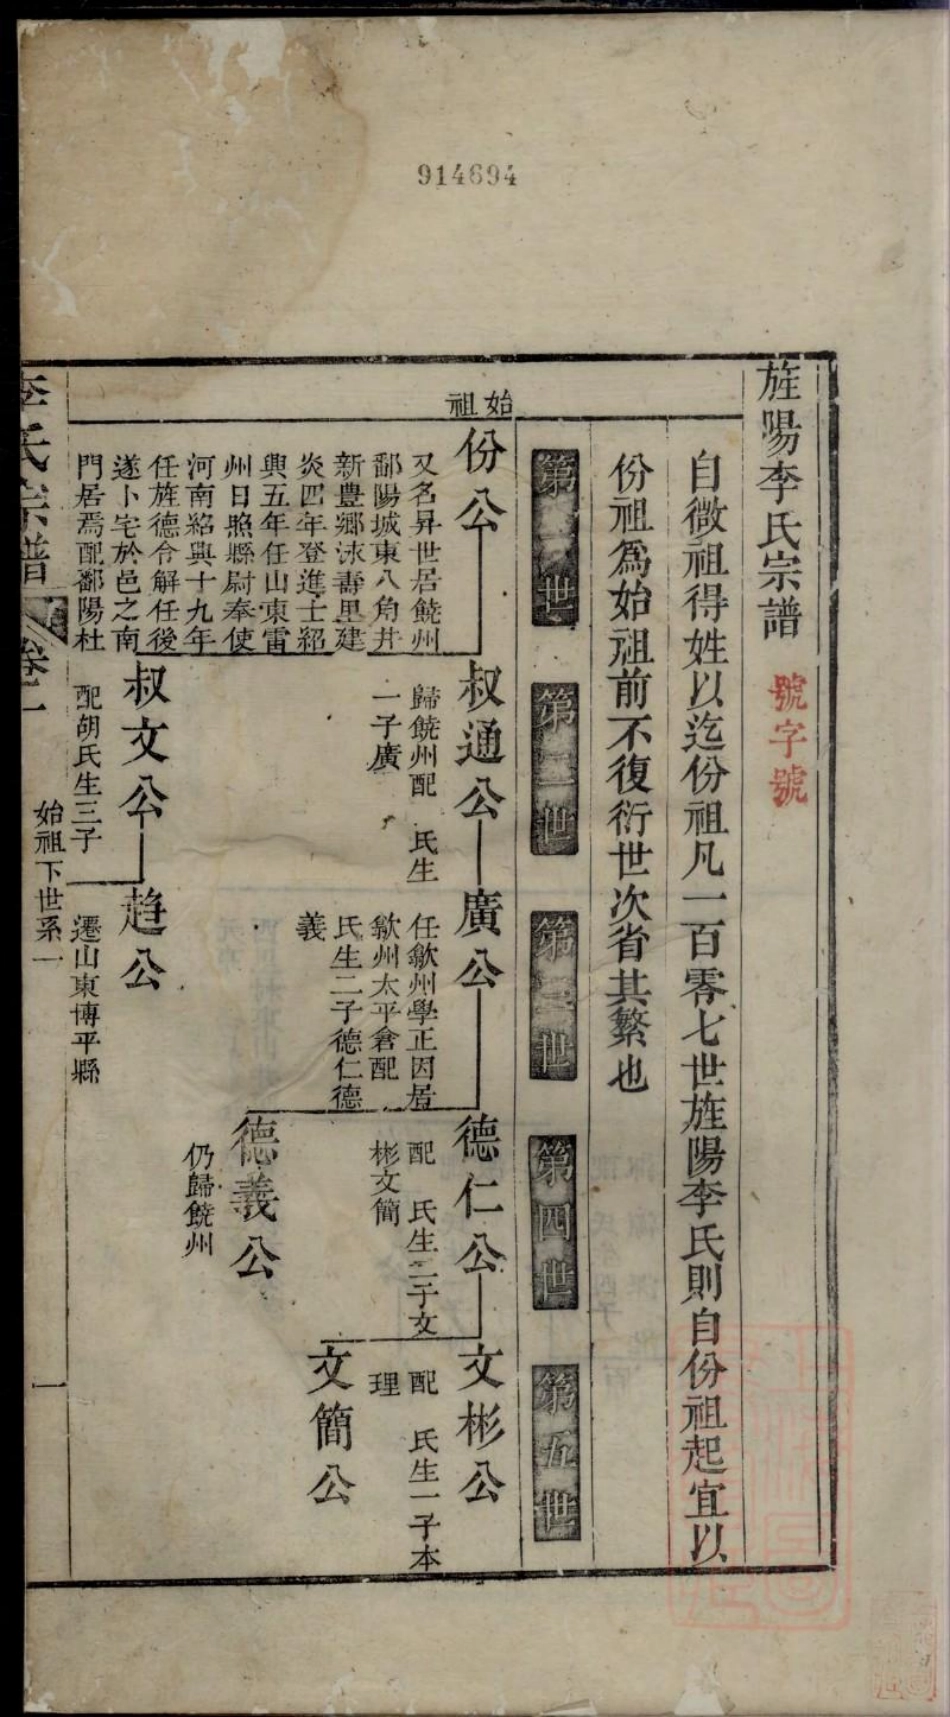 914694
旌陽李氏宗譜
號字號
自微祖得姓以迄份祖凡一百零七世旌陽李氏則自份祖起宜以
份祖為始祖前不復衍世次省其繁也
第一世
第二世
第三世
第四世
第五世
始祖
份公
又名昇世居饒州
鄱陽城東八角井
新豊鄉沭壽里建
炎四年登進士紹
興五年任山東雷
州日照縣尉奉使
河南紹興十九年
任旌德令解任後
遂卜宅於邑之南
門居焉配鄱陽杜
叔通公
歸饒州配 氏生
一子廣
廣公
任歙州學正因居
歙州太平倉配
氏生二子德仁德
義
德仁公
配 氏生二子文
彬文簡
文彬公
配 氏生一子本
理
文簡公
德義公
仍歸饒州
叔文公
配胡氏生三子
趋公
遷山東博平縣
李氏宗譜
卷一
始祖下世系一
一